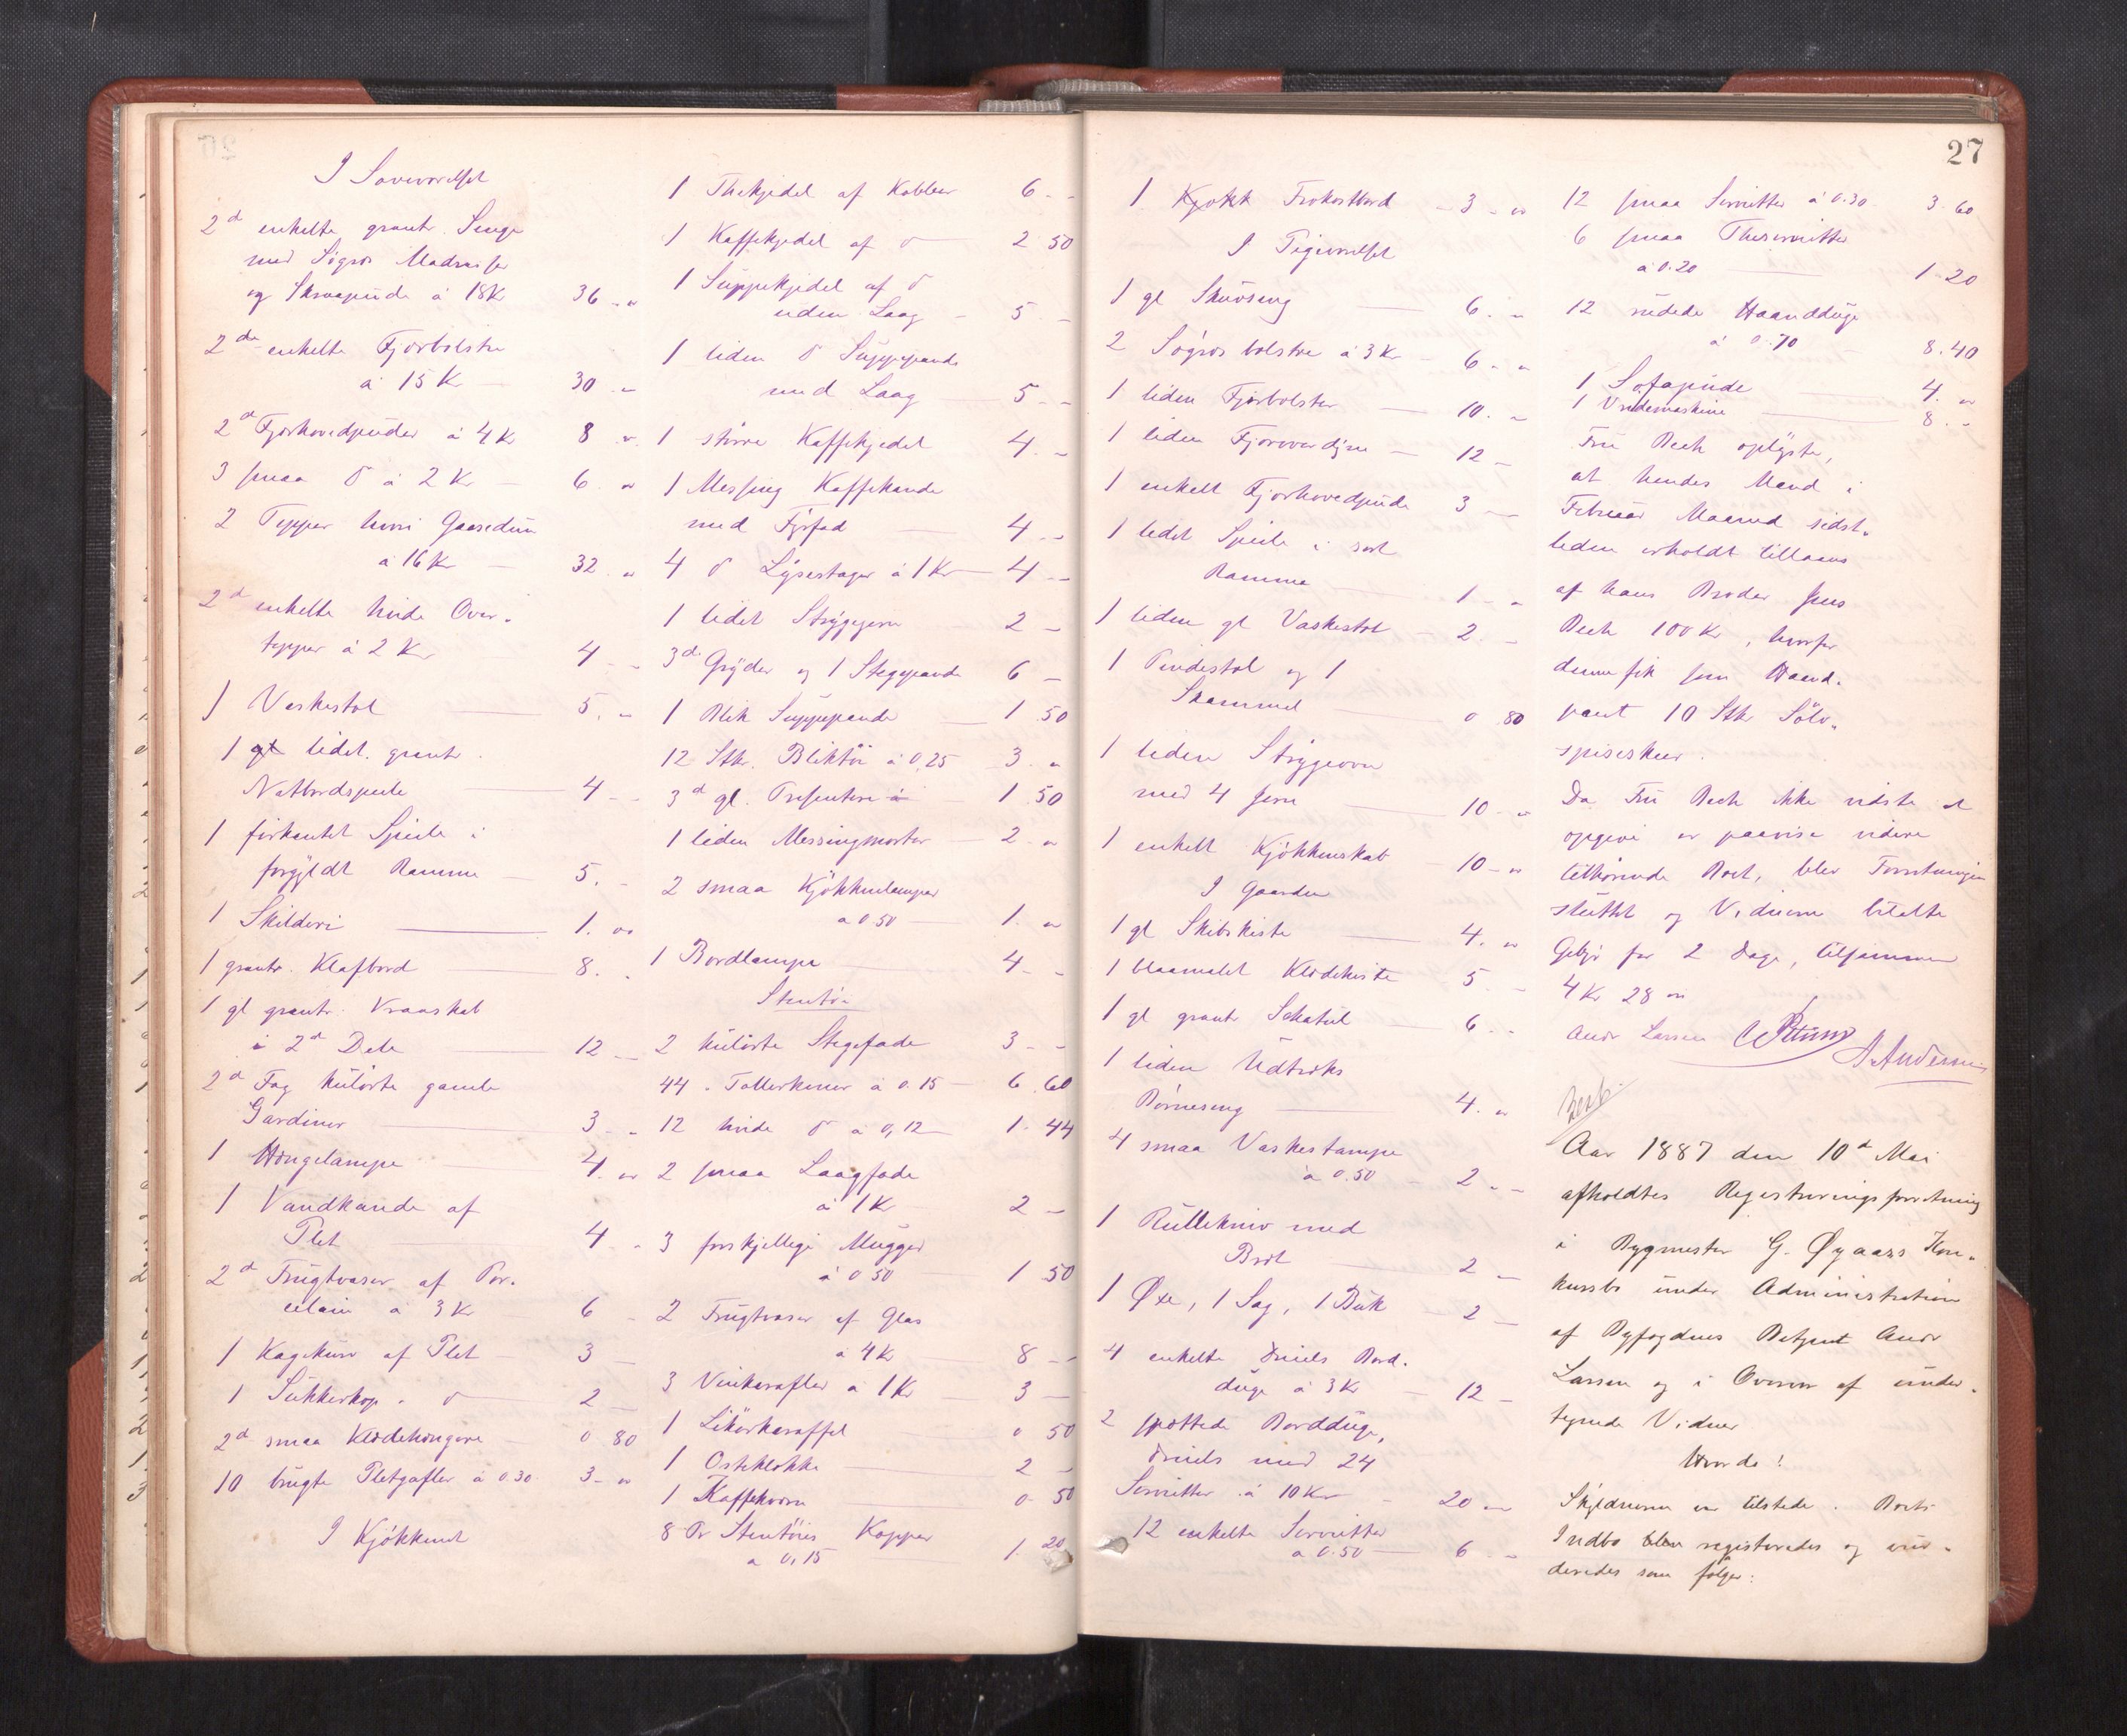 I Soveværelset
2de enkelte grantr. Senge
med Søgræs Madrasser
og Skraapude à 18 Kr 36 - "
2de enkelte Fjærbolstre
à 15 Kr — 30 - "
2de Fjærhovedpuder à 4 Kr 8 "
3 smaa do à 2 Kr — 6 "
2 Tepper hvori Gaasedun
à 16 Kr — 32 "
2de enkelte hvide Over-
tepper à 2 Kr 4 - -
1 Vaskestol — 5. "
1 gl lidet grantr.
Natbordspeile — 4 - -
1 firkantet Speile i
forgyldt Ramme — 5. -
1 Skilderi — 1. "
1 grantr. Klafbord — 8. "
1 gl grantr. Vraaskab
i 2de Dele — 12 -
2de Fag kulørte gamle
Gardiner — 3 - "
1 Hængelampe — 4. "
1 Vandkande af
Plet — 4 - "
2de Frugtvaser af Por-
celain à 3 Kr 6 -
1 Kagekurv af Plet — 3 -
1 Sukkerkop - do — 2 -
2de smaa Klædehængere 0 80
10 brugte Pletgafler à 0.30 3 - "
I Kjøkkenet
1 Thekjedel af Kobber 6 - -
1 Kaffekjedel af do 2 50
1 Suppekjedel af do
uden Laag — 5 -
1 liden do Suppepande
med Laag 5 - -
1 større Kaffekjedel 4 - -
1 Messing Kaffekande
med Fyrfad — 4 - -
4 do Lysestager à 1 Kr — 4 - -
1 lidet Strygejern 2 -
3de Gryder og 1 Stegepande 6 -
1 Blik Suppepande — 1 50
12 Stkr. Bliktøi à 0,25 3 - "
3de gl. Presentere à 1 50
1 liden Messingmorter — 2 - "
2 smaa Kjøkkenlamper
à 0 50 — 1. "
1 Bordlampe — 4 - -
Stentøi
2 kulørte Stegefade 3 - -
44 - Tallerkener à 0.15 6.60
12 hvide do à 0,12 — 1.44
2 smaa Laagfade
à 1 Kr — 2 -
3 forskjellige Mugger
à 0 50 — 1 50
2 Frugtvaser af Glas
à 4 Kr — 8 - -
3 Vinkarafler à 1 Kr — 3 -
1 Likørkaraffel 0 50
1 Osteklokke — 2 -
1 Kaffekværn — 0 - 50
8 Pr Stentøies Kopper
à 0,15 1. 20
27
1 Kjøkk Frokostbord - 3 - "
I Pigeværelset
1 gl Skuvseng — 6. "
2 Søgræs bolstre à 3 Kr — 6 - "
1 liden Fjærbolster — 10. "
1 liden Fjæroverdyne — 12 -
1 enkelt Fjærhovedpude 3 -
1 lidet Speile i sort
Ramme — 1 - "
1 liden gl Vaskestol — 2. -
1 Pindestol og 1
Skammel — 0 80
1 liden Strygeovn
med 4 Jern — 10 - "
1 enkelt Kjøkkenskab — 10 - "
I Gaarden
1 gl Skibskiste — 4. "
1 blaamalet Klædekiste 5 - -
1 gl grantr Schatul — 6 - -
1 liden Udtræks
Børneseng — 4. "
4 smaa Vaskestamper
à 0.50 — 2 - -
1 Rullekniv med
Bret — 2 -
1 Øxe, 1 Sag, 1 Buk 2 -
4 enkelte Dreiels Bord-
duge à 3 Kr — 12 -
2 spættede Borduge,
Dreiels med 24
Servietter à 10 Kr — 20 - "
12 enkelte Servietter
à 0.50 — 6 - -
12 smaa Servietter à 0.30 3.60
6 smaa Theservietter
à 0.20 — 1 20
12 rudede Haandduge
à 0.70 — 8.40
1 Sofapude — 4. "
1 Vridemaskine — 8. -
Fru Bech oplyste,
at hendes Mand i
Februar Maaned sidst-
leden erholdt tillaans
af hans Broder Jens
Bech 100 Kr, hvorfor
denne fik som Haand-
pant 10 Stk Sølv-
spiseskeer.
Da Fru Bech ikke vidste at
opgive or paavise videre
tilhørende Boet, blev Forretningen
sluttet og Vidnerne betalte
Gebyr for 2 Dage, tilsammen
4 Kr 28 øre
Andr Larsen A Andersen
Besb.
Aar 1887 den 10de Mai
afholdtes Registreringsforretning
i Bygmester G. Øyaass Kon-
kursbo under Administration
af Byfogdens Betjent Andr
Larsen og i Overvær af under-
tegnede Vidner
Hvorda!
Skyldneren var tilstede. Boets
Indbo blev registreredes og vur-
deredes som følger: